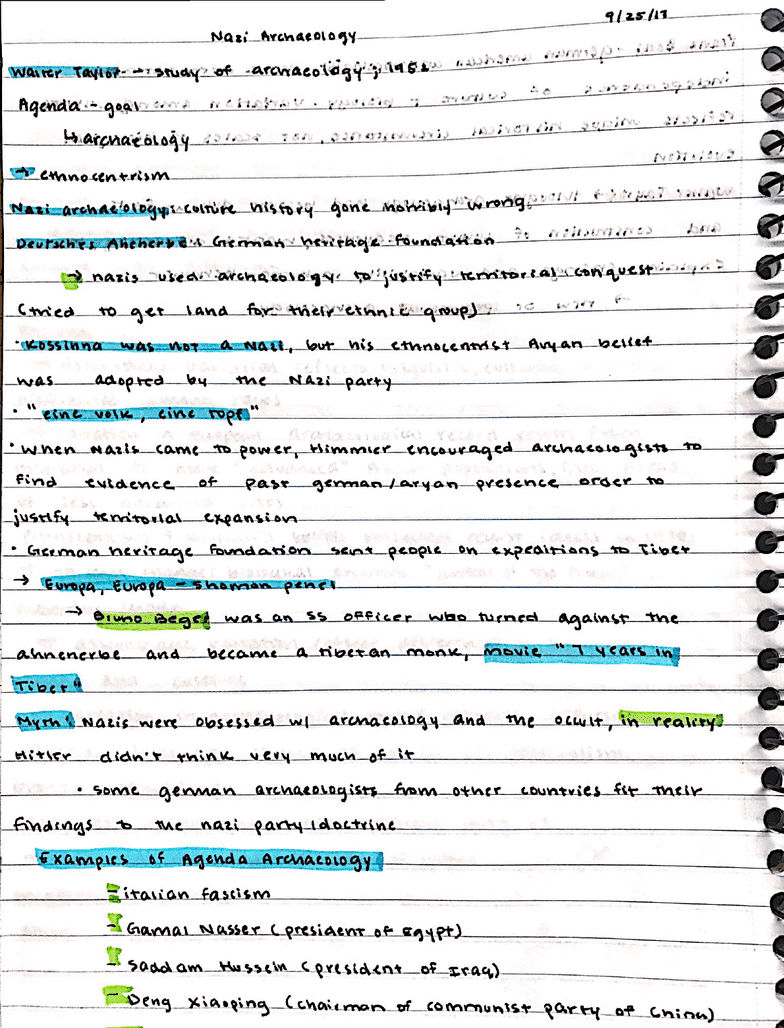 9/25/17
Nazi Archaeology
Walter Taylor → study of archaeology; 1951
Agenda - goal
↳ archaeology
→ ethnocentrism
Nazi archaeology: culture history gone horribly wrong.
Deutsches Ahenerbe: German heritage foundation
→ nazis used archaeology to justify territorial conquest
(tried to get land for their ethnic group)
• Kossinna was not a Nazi, but his ethnocentrist Aryan belief
was adopted by the Nazi party
• "eine volk, eine topf"
• When Nazis came to power, Himmler encouraged archaeologists to
find evidence of past german/aryan presence order to
justify territorial expansion
• German heritage foundation sent people on expeditions to Tibet
→ Europa, Europa - shoman perel
→ Bruno Beger was an SS officer who turned against the
ahnenerbe and became a tibetan monk, movie "7 years in
Tibet"
Myth: Nazis were obsessed w/ archaeology and the occult, in reality
Hitler didn't think very much of it
• some german archaeologists from other countries fit their
findings to the nazi party doctrine
Examples of Agenda Archaeology
- italian fascism
- Gamal Nasser (president of Egypt)
- Saddam Hussein (president of Iraq)
- Deng Xiaoping (chairman of communist party of China)